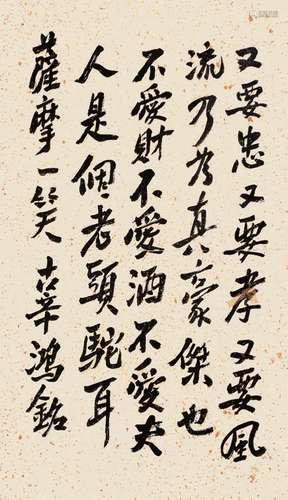 又要忠又要孝又要風
流乃為真豪傑也
不愛財不愛酒不愛夫
人是個老頭駝耳
薩摩一笑 古辜鴻銘